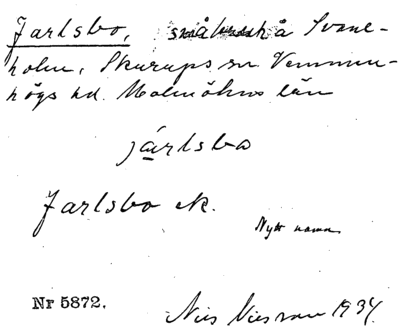 Jarlsbo, på Svane-
holm, Skurups sn Vemmen-
högs hd. Malmöhus län
jarlsbo
Jarlsbo ek.
Nytt namn
Nr 5872.
Nils 1934.